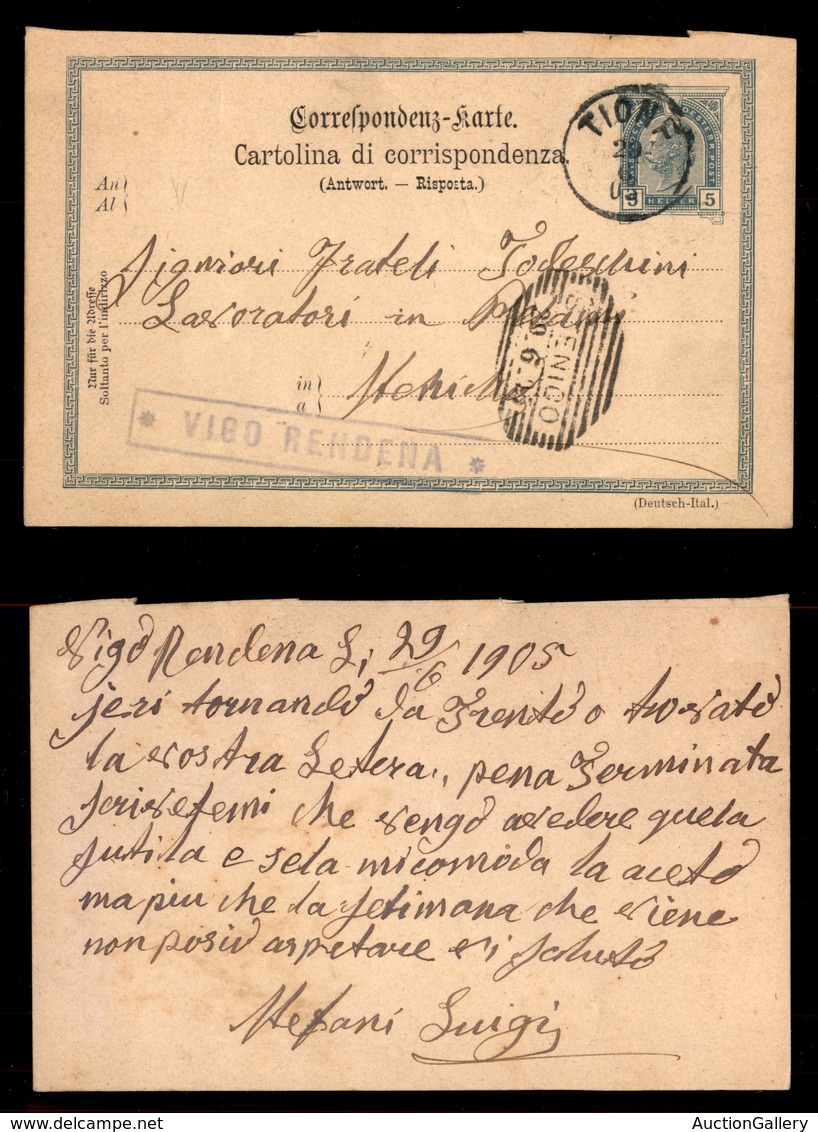 Correspondenz-Karte.
Cartolina di corrispondenza.
(Antwort. — Risposta.)
An
Al
TIONE
29
5 HELLER 5
Signiori Frateli Todeschini
Lavoratori in
in
a
Nur für die Adresse
Soltanto per l'indirizzo
* VIGO RENDENA *
(Deutsch-Ital.)
Vigo Rendena Li 29/6 1905
jeri tornando da Trento o trovato
la vostra Letera, pena Terminata
scrivetemi che vengo avedere quela
sutila e sela micomoda la aceto
ma piu che la setimana che viene
non posio aspetare vi saluto
Stefani Luigi
AuctionGallery